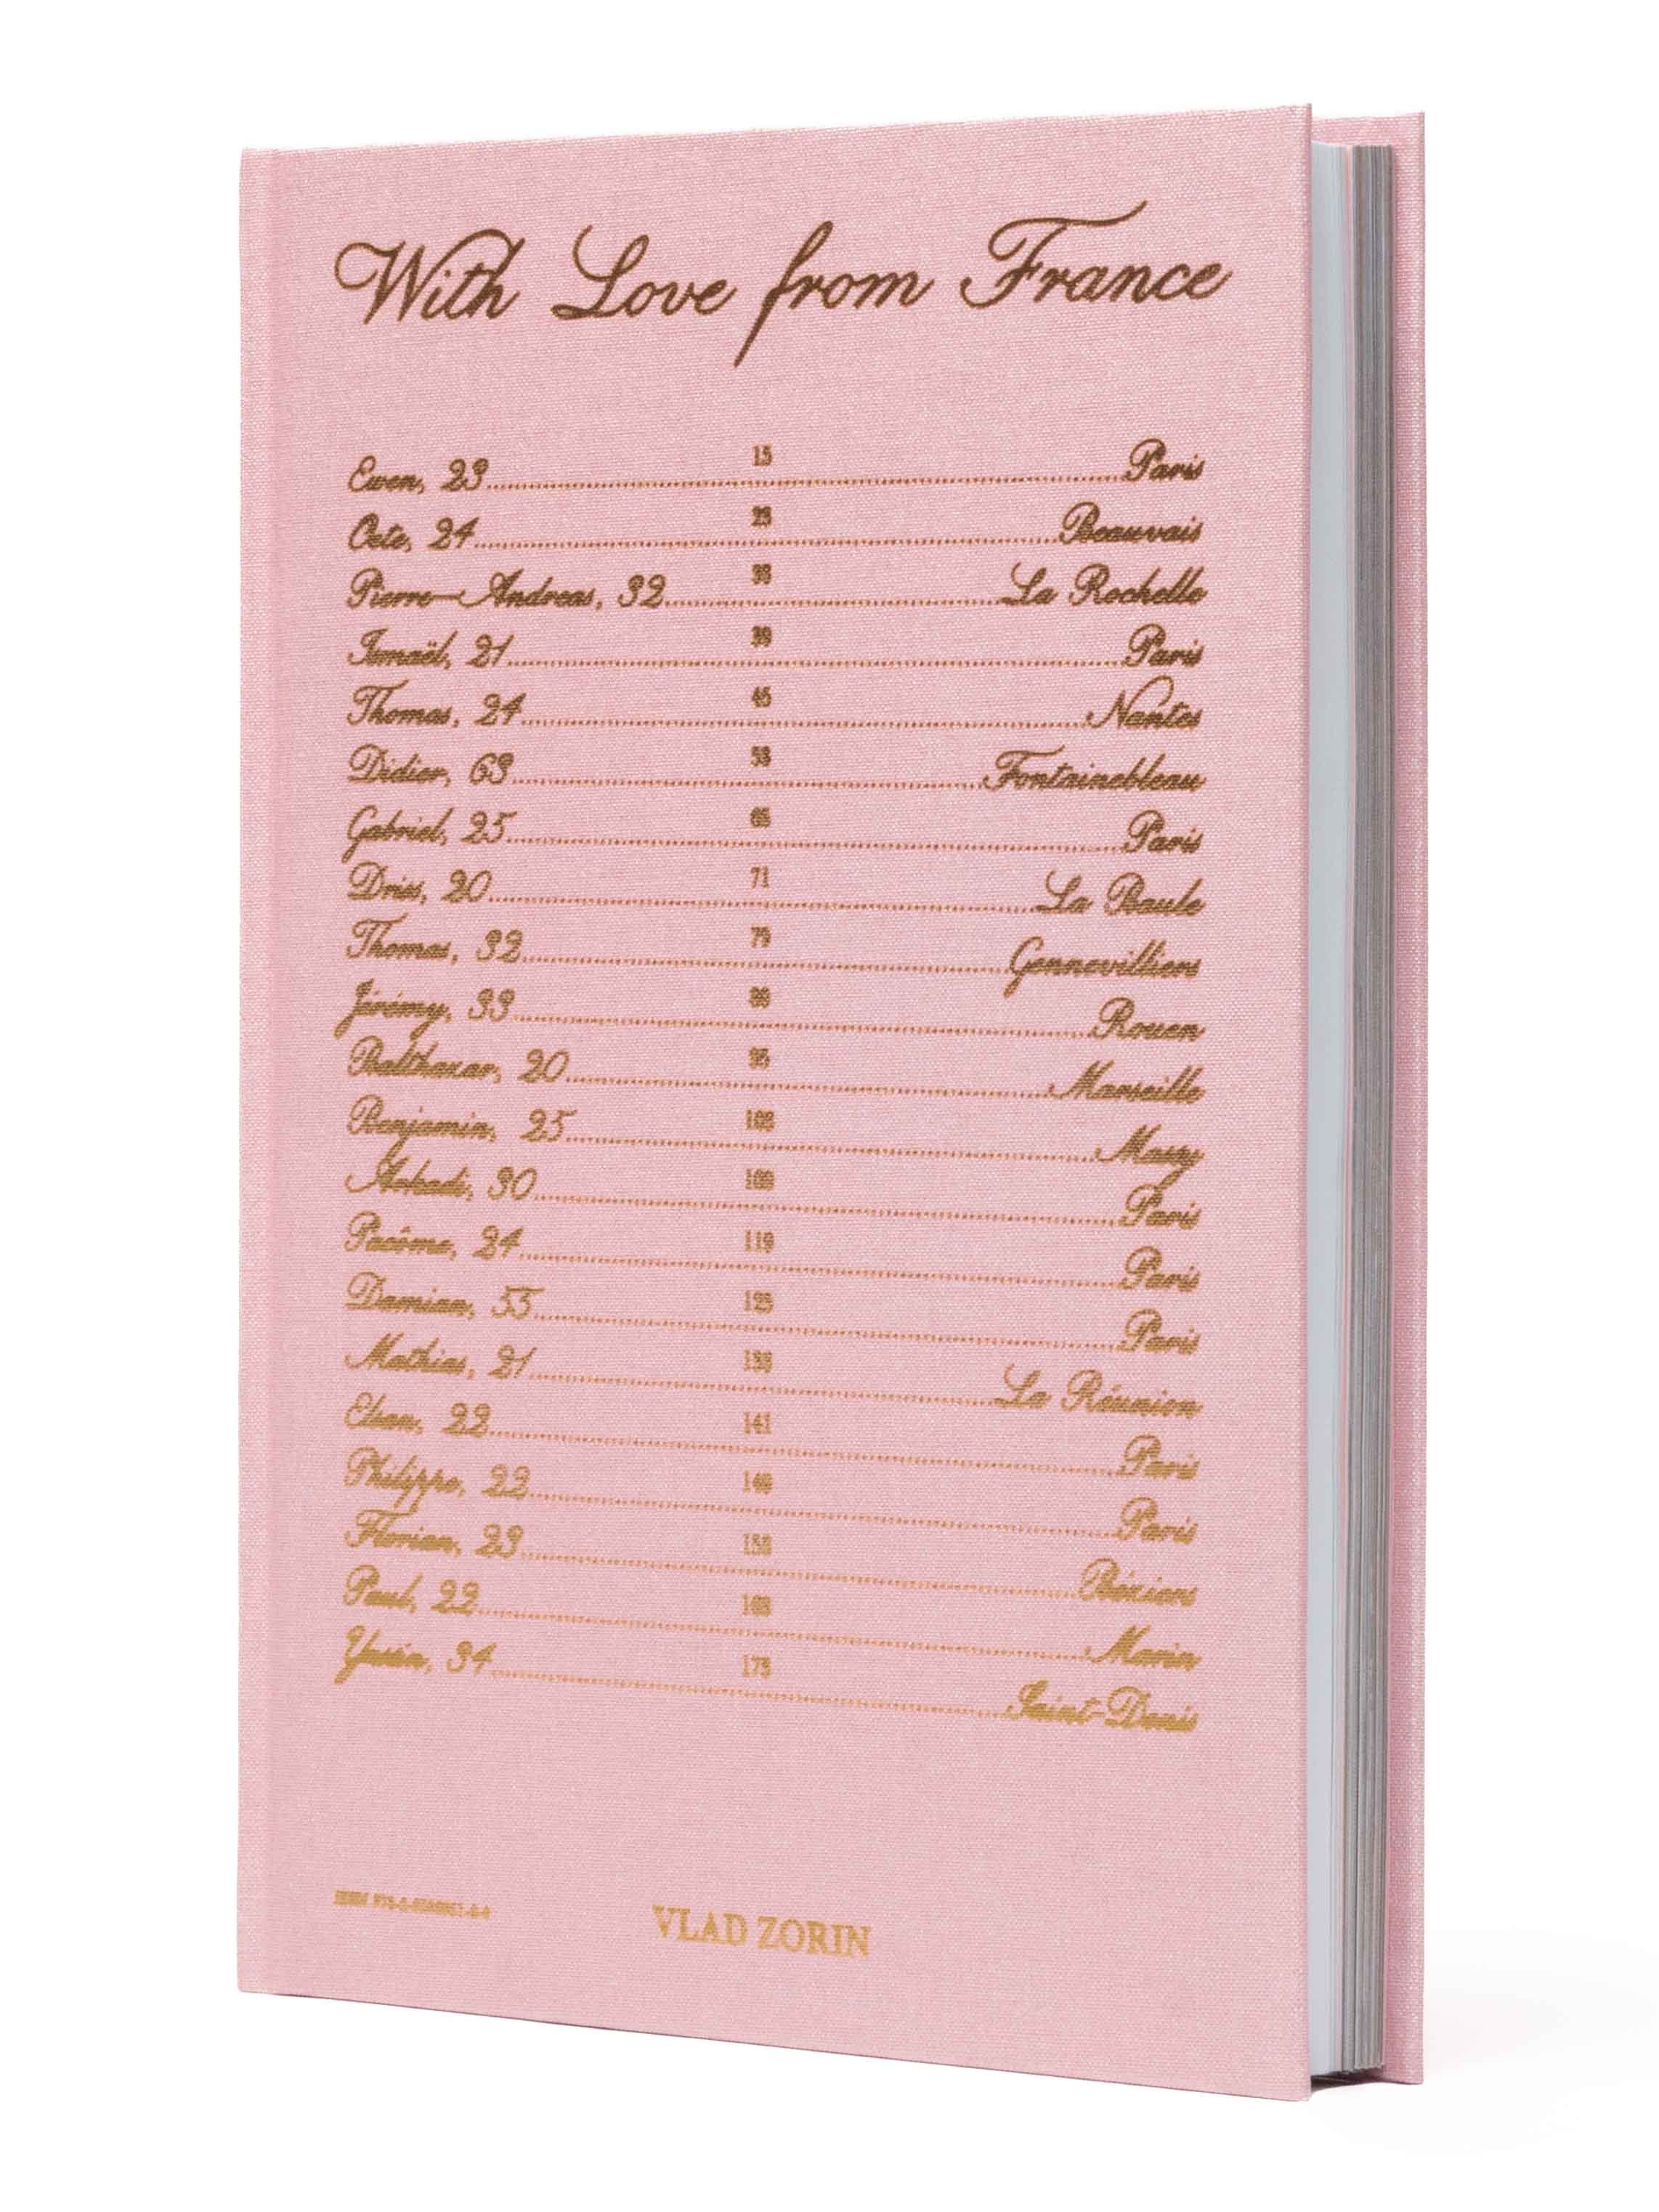 With Love from France
Ewen, 23 15 Paris
24 23 Beauvais
Pierre-Andreas, 32 33 La Rochelle
Ismaël, 21 39 Paris
Thomas, 24 45 Nantes
Didier, 63 53 Fontainebleau
Gabriel, 25 65 Paris
Driss, 20 71 La Baule
Thomas, 32 79 Gennevilliers
Jérémy, 33 Rouen
Balthazar, 20 95 Marseille
Benjamin, 25 103 Massy
Arkadi, 30 109 Paris
Pacôme, 24 119 Paris
Damian, 55 125 Paris
Mathias, 21 La Réunion
Elsan, 22 141 Paris
Philippe, 22 Paris
Florian, 23 Béziers
Paul, 22 Marin
34 173 Saint-Denis
VLAD ZORIN